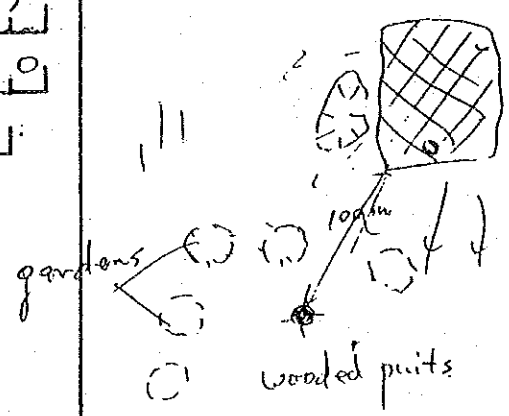 100m
gardens
wooded puits